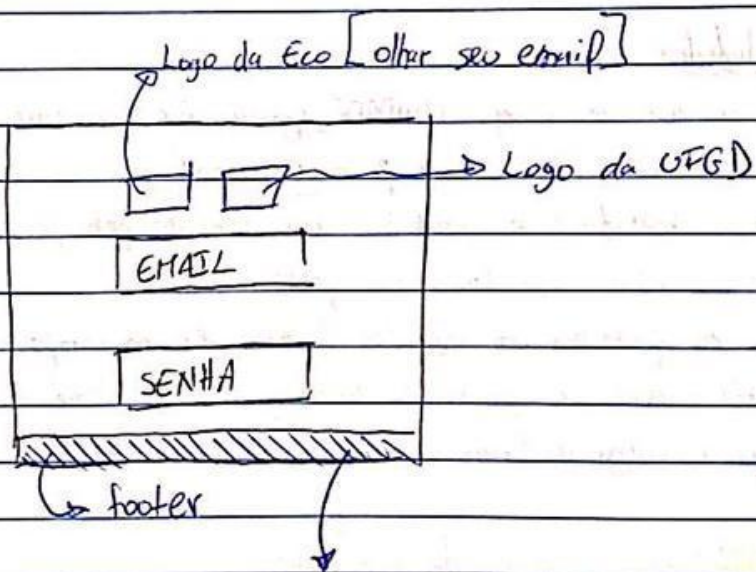 Logo da Eco [olhar seu email]
Logo da UFGD
EMAIL
SENHA
footer